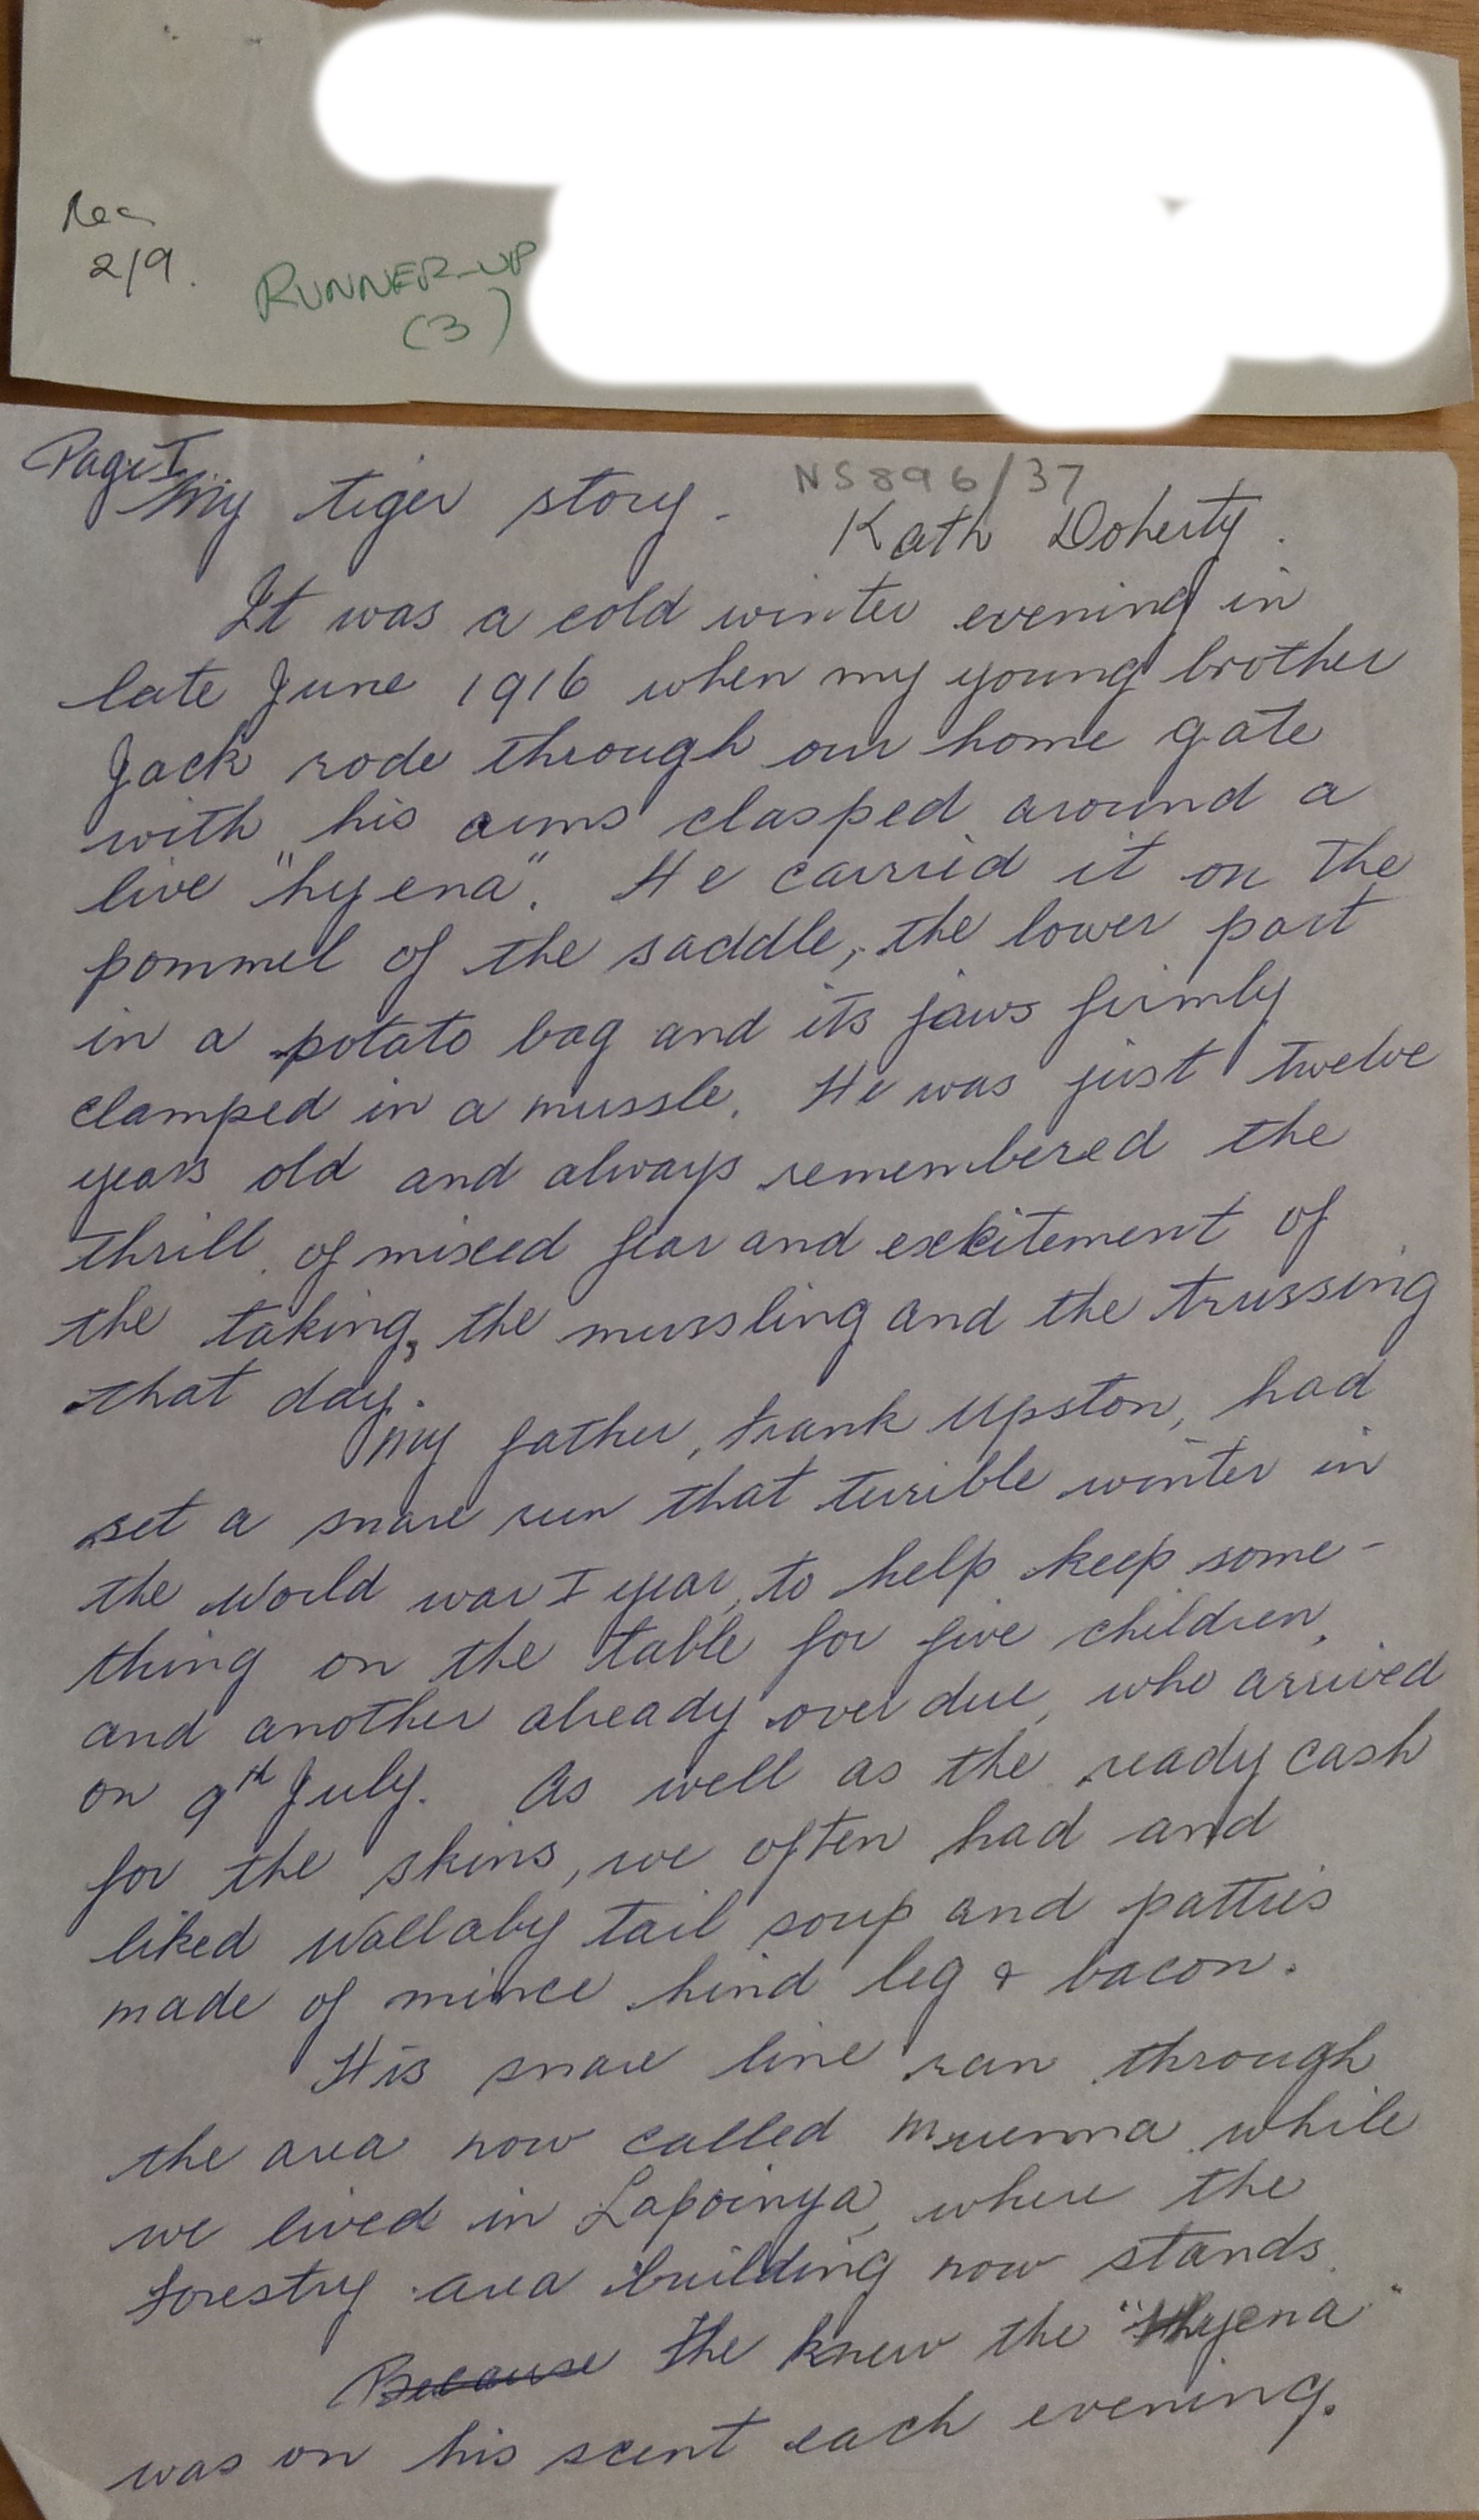 Rec
2/9.
RUNNER-UP
(3)
Page I
NS896/37
My tiger story.
Kath Doherty.
It was a cold winter evening in
late June 1916 when my young brother
Jack rode through our home gate
with his arms clasped around a
live "hyena". He carried it on the
pommel of the saddle, the lower part
in a potato bag and its jaws firmly
clamped in a mussle. He was just twelve
years old and always remembered the
thrill of mixed fear and excitement of
the taking, the mussling and the trussing
that day.
My father, Frank Upston, had
set a snare run that terrible winter in
the World war I year, to help keep some-
thing on the table for five children,
and another already over due, who arrived
on 9th July. As well as the ready cash
for the skins, we often had and
liked Wallaby tail soup and patties
made of mince hind leg & bacon.
His snare line ran through
the area now called Myrunna while
we lived in Lapoinya, where the
Forestry area building now stands.
Because He knew the "Hyena"
was on his scent each evening.